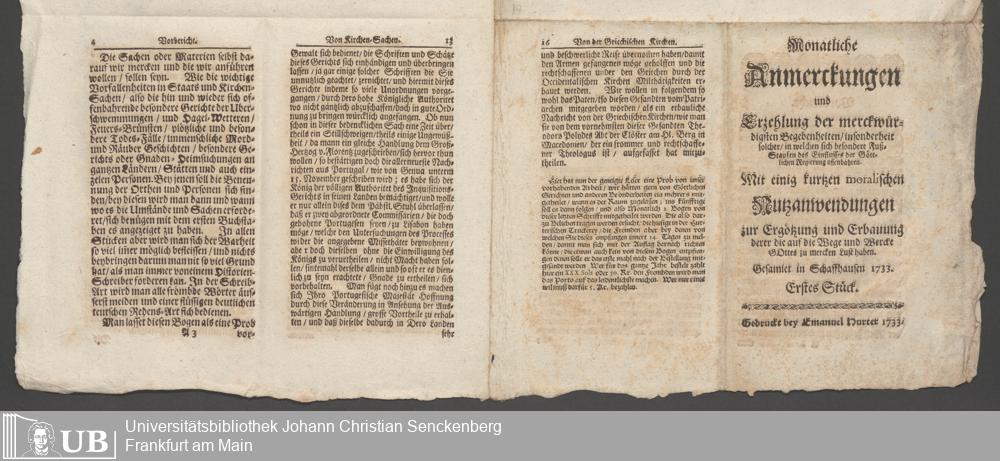 4 Vorbericht.
Die Sachen oder Materien selbst da-
rauf wir mercken und die wir anführen
wollen / sollen seyn. Wie die wichtige
Vorfallenheiten in Staats und Kirchen-
Sachen / also die hin und wieder sich of-
fenbahrende besondere Gerichte der Uber-
schwemmungen / und Hagel-Wetteren /
Feuers-Brünsten / plötzliche und beson-
dere Todes-Fälle / unmenschliche Mord-
und Räuber Geschichten / besondere Ge-
richts oder Gnaden-Heimsuchungen an
gantzen Ländern / Stätten und auch ein-
zelen Personen. Bey jenen soll die Benen-
nung der Orthen und Personen sich fin-
den / bey diesen wird man dann und wann
wo es die Umstände und Sachen erforde-
ret / sich benügen mit dem ersten Buchsta-
ben es angezeiget zu haben. In allen
Stücken aber wird man sich der Warheit
so viel uner möglich befleissen / und nichts
beybringen darum man nit so viel Grund
hat / als man immer von einem Historien-
Schreiber forderen kan. In der Schreib-
Art wird man alle frömbde Wörter äus-
serst meiden und einer flüssigen deutlichen
teutschen Redens-Art sich bedienen.
Man lasset diesen Bogen als eine Prob
A 3 vor-
Von Kirchen-Sachen.
Gewalt sich bedienet / die Schriften und Schätze
dieses Gerichts sich einhändigen und überbringen
lassen / ja gar einige solcher Schriften die Sie
unnutzlich geachtet / zernichtet / und hiermit dieses
Gerichte indeme so viele Unordnungen vorge-
gangen / durch dero hohe Königliche Authoritet
wo nicht gäntzlich abzuschaffen / doch in gute Ord-
nung zu bringen würcklich angefangen. Ob nun
schon in dieser bedencklichen Sach eine Zeit über /
theils ein Stillschweigen / theils einige Ungewiß-
heit / da mann ein gleiche Handlung dem Groß-
Hertzog v. Florentz zugeschrieben / sich hervor thun
wollen / so bestättigen doch die allerneueste Nach-
richten aus Portugal / wie von Genua unterm
15. November geschriben wird; es habe sich der
König der völligen Authoritet des Inquisitions-
Gerichts in seinen Landen bemächtiget / und wolle
er nur allein dises dem Päbstl. Stuhl überlassen /
daß er zwey abgeordnete Commissarien / die doch
gebohrne Portugesen seyen / zu Lisabon haben
möge / welche den Untersuchungen des Processes
wider die angegebene Missethäter beywohnen /
aber doch dieselben ohne die Einwilligung des
Königs zu verurtheilen / nicht Macht haben sol-
len / sintenmahl derselbe allein und so oft er es dien-
lich zu seyn erachtete / Gnade zu ertheilen / sich
vorbehalten. Man fügt noch hinzu es machen
sich Jhro Portugesische Majestät Hoffnung
durch diese Veränderung in Ansehung der Aus-
wärtigen Handlung / grosse Vortheile zu erhal-
ten / und daß dieselbe dadurch in Dero Landen
sehr
16 Von der Griechischen Kirchen.
und beschwerliche Reise übernohmen haben / damit
den Armen gefangenen möge geholffen und die
rechtschaffenen under den Griechen durch der
Occidentalischen Kirchen Mildthärigkeiten er-
bauet werden. Wir wollen in folgendem so
wohl das Paten / so diesen Gesandten vom Patri-
archen mitgegeben worden / als ein erbauliche
Nachricht von der Griechischen Kirchen / wie man
sie von dem vornehmsten dieser Gesandten Theo-
dors Polydos Abt der Clöster am Hl. Berg in
Macedonien / der ein frommer und rechtschaffe-
ner Theologus ist / aufgefasset hat mitzu-
theilen.
Monatliche
Anmerckungen
und
Erzehlung der merckwür-
digsten Begebenheiten / insonderheit
solcher / in welchen sich besondere Fuß-
Stapfen des Einflusses der Gött-
lichen Regierung offenbahren.
Mit einig kurtzen moralischen
Nutzanwendungen
zur Ergötzung und Erbauung
derer die auf die Wege und Wercke
GOttes zu mercken Lust haben.
Gesamlet in Schaffhausen 1733.
Erstes Stück.
Gedruckt bey Emanuel Hurter 1733.
UB
Universitätsbibliothek Johann Christian Senckenberg
Frankfurt am Main